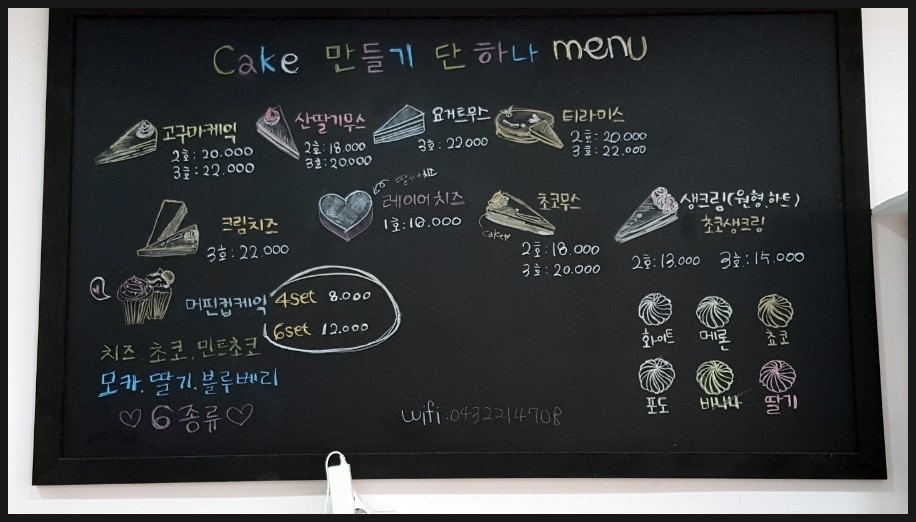 Cake 만들기 단 하나 menu
고구마케익
2호: 20.000
3호: 22.000
산딸기무스
2호: 18.000
3호: 20.000
요거트무스
3호: 22.000
티라미스
2호: 20.000
3호: 22.000
크림치즈
3호: 22.000
딸기+치즈
레이어치즈
1호: 10.000
초코무스
cake♥
2호: 18.000
3호: 20.000
생크림(원형.하트)
초코생크림
2호: 13.000 3호: 15.000
머핀컵케익 4set 8.000
6set 12.000
치즈. 초코. 민트초코
모카. 딸기. 블루베리
♡ 6 종류 ♡
화이트 메론 쵸코
포도 바나나 딸기
wifi: 0432214708